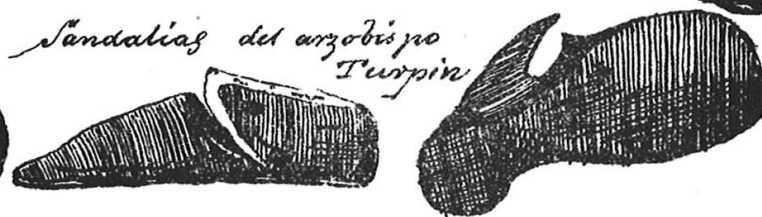 Sandalias del arzobispo
Turpin